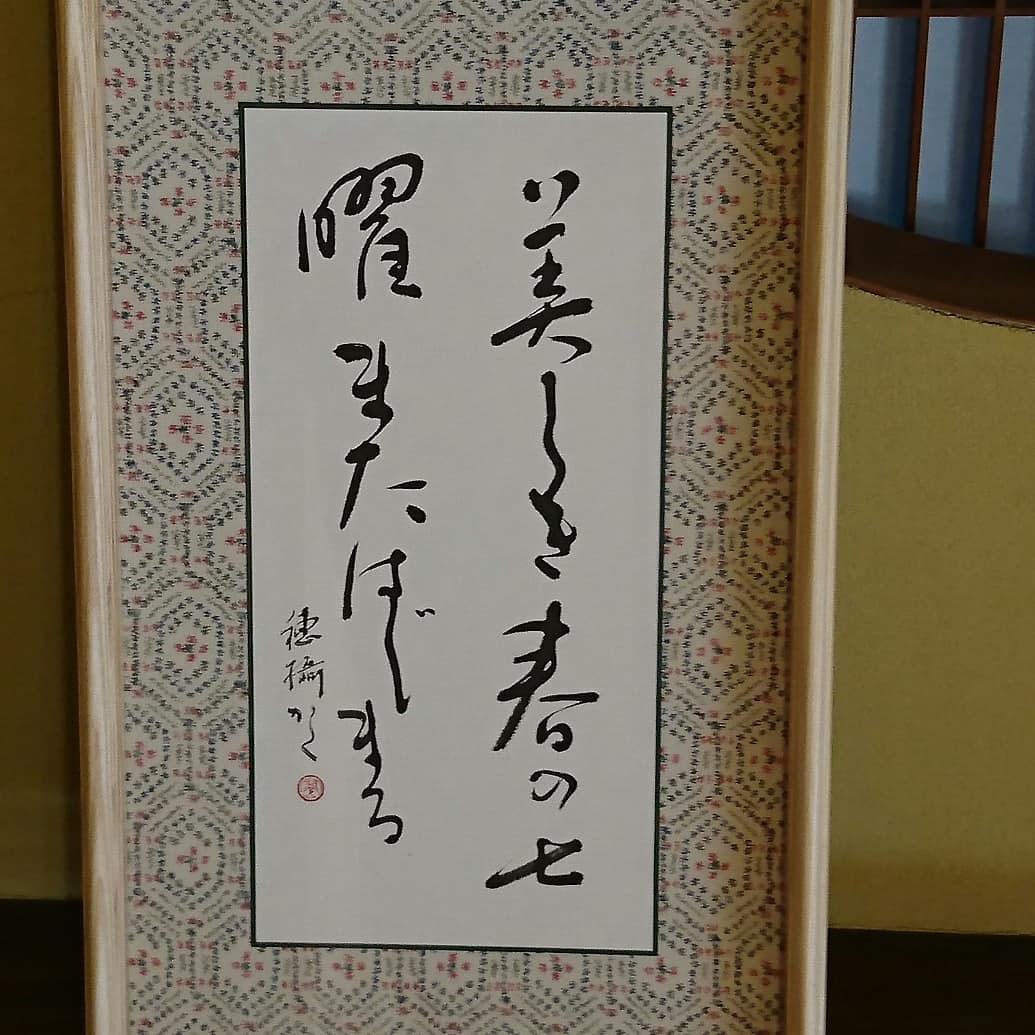 美しき春の七
曜またはじまる
穂擶かく